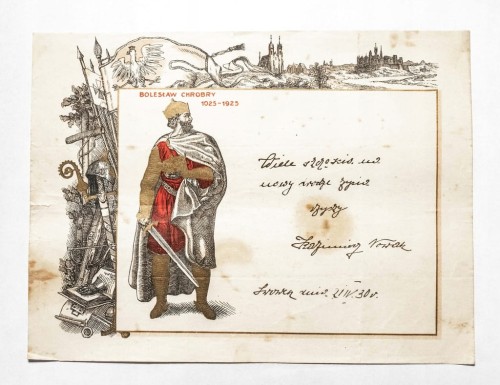 BOLESŁAW CHROBRY
1025-1925
Wiele szczęścia na
nowej drodze życia
życzy
Kazimierz Nowak
dnia IV. 30 r.